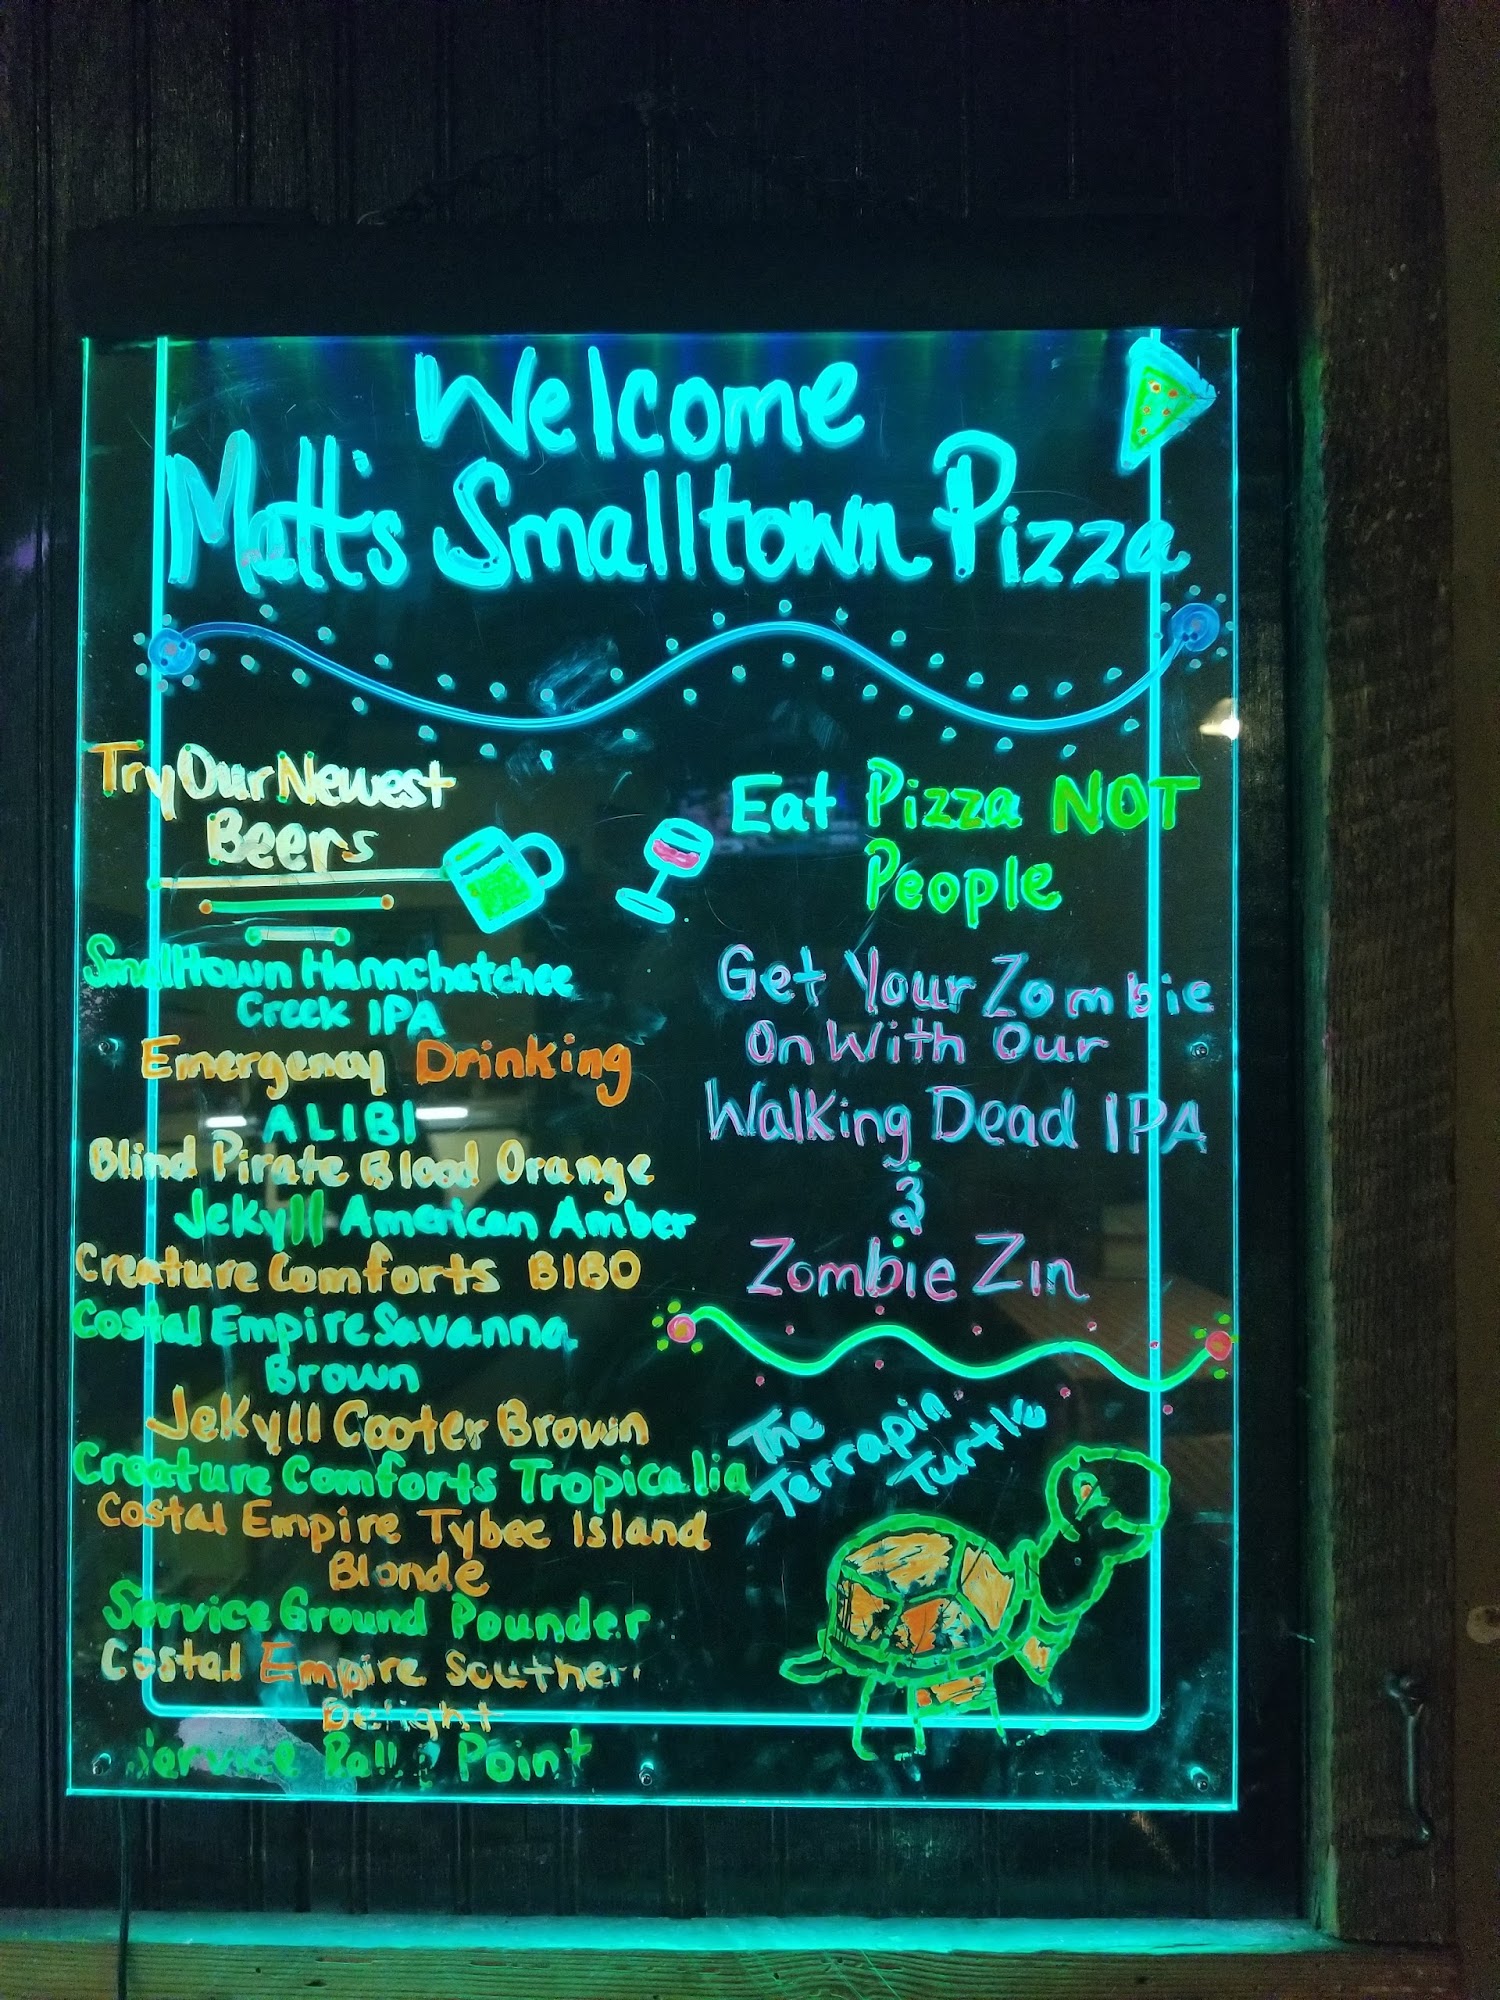 Welcome
Matt's Smalltown Pizza
Try Our Newest
Beers
Smalltown Hannchatchee
Creek IPA
Emergency Drinking
ALIBI
Blind Pirate Blood Orange
Jekyll American Amber
Creature Comforts BIBO
Costal Empire Savanna
Brown
Jekyll Cooter Brown
Creature Comforts Tropicalia
Costal Empire Tybee Island
Blonde
Service Ground Pounder
Costal Empire Southern
Delight
Service Point
Eat Pizza NOT
People
Get Your Zombie
On With Our
Walking Dead IPA
Zombie Zin
The
Terrapin
Turtle